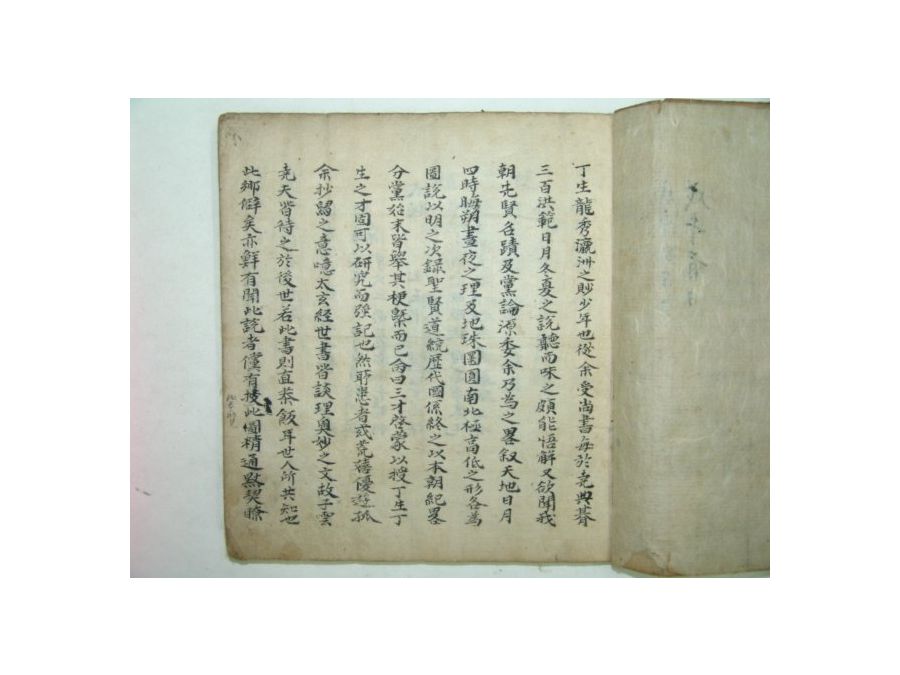 丁生龍秀瀛洲之眇少年也從余受尙書每於堯典朞
三百洪範日月冬夏之說聽而味之頗能悟解又欲聞我
朝先賢名蹟及黨論源委余乃爲之畧叙天地日月
四時晦朔晝夜之理及地球圖圓南北極高低之形各爲
圖說以明之次錄聖賢道統歷代國係終之以本朝紀畧
分黨始末皆擧其梗槩而已命曰三才啓蒙以授丁生丁
生之才固可以硏究而强記也然所患者或荒嬉優遊孤
余抄錄之意噫太玄經世書皆談理奧妙之文故子雲
堯天皆待之於後世若此書則直茶飯耳世人所共知也
此鄕僻矣亦鮮有聞此說者僅有披此圖精通黙契瞭